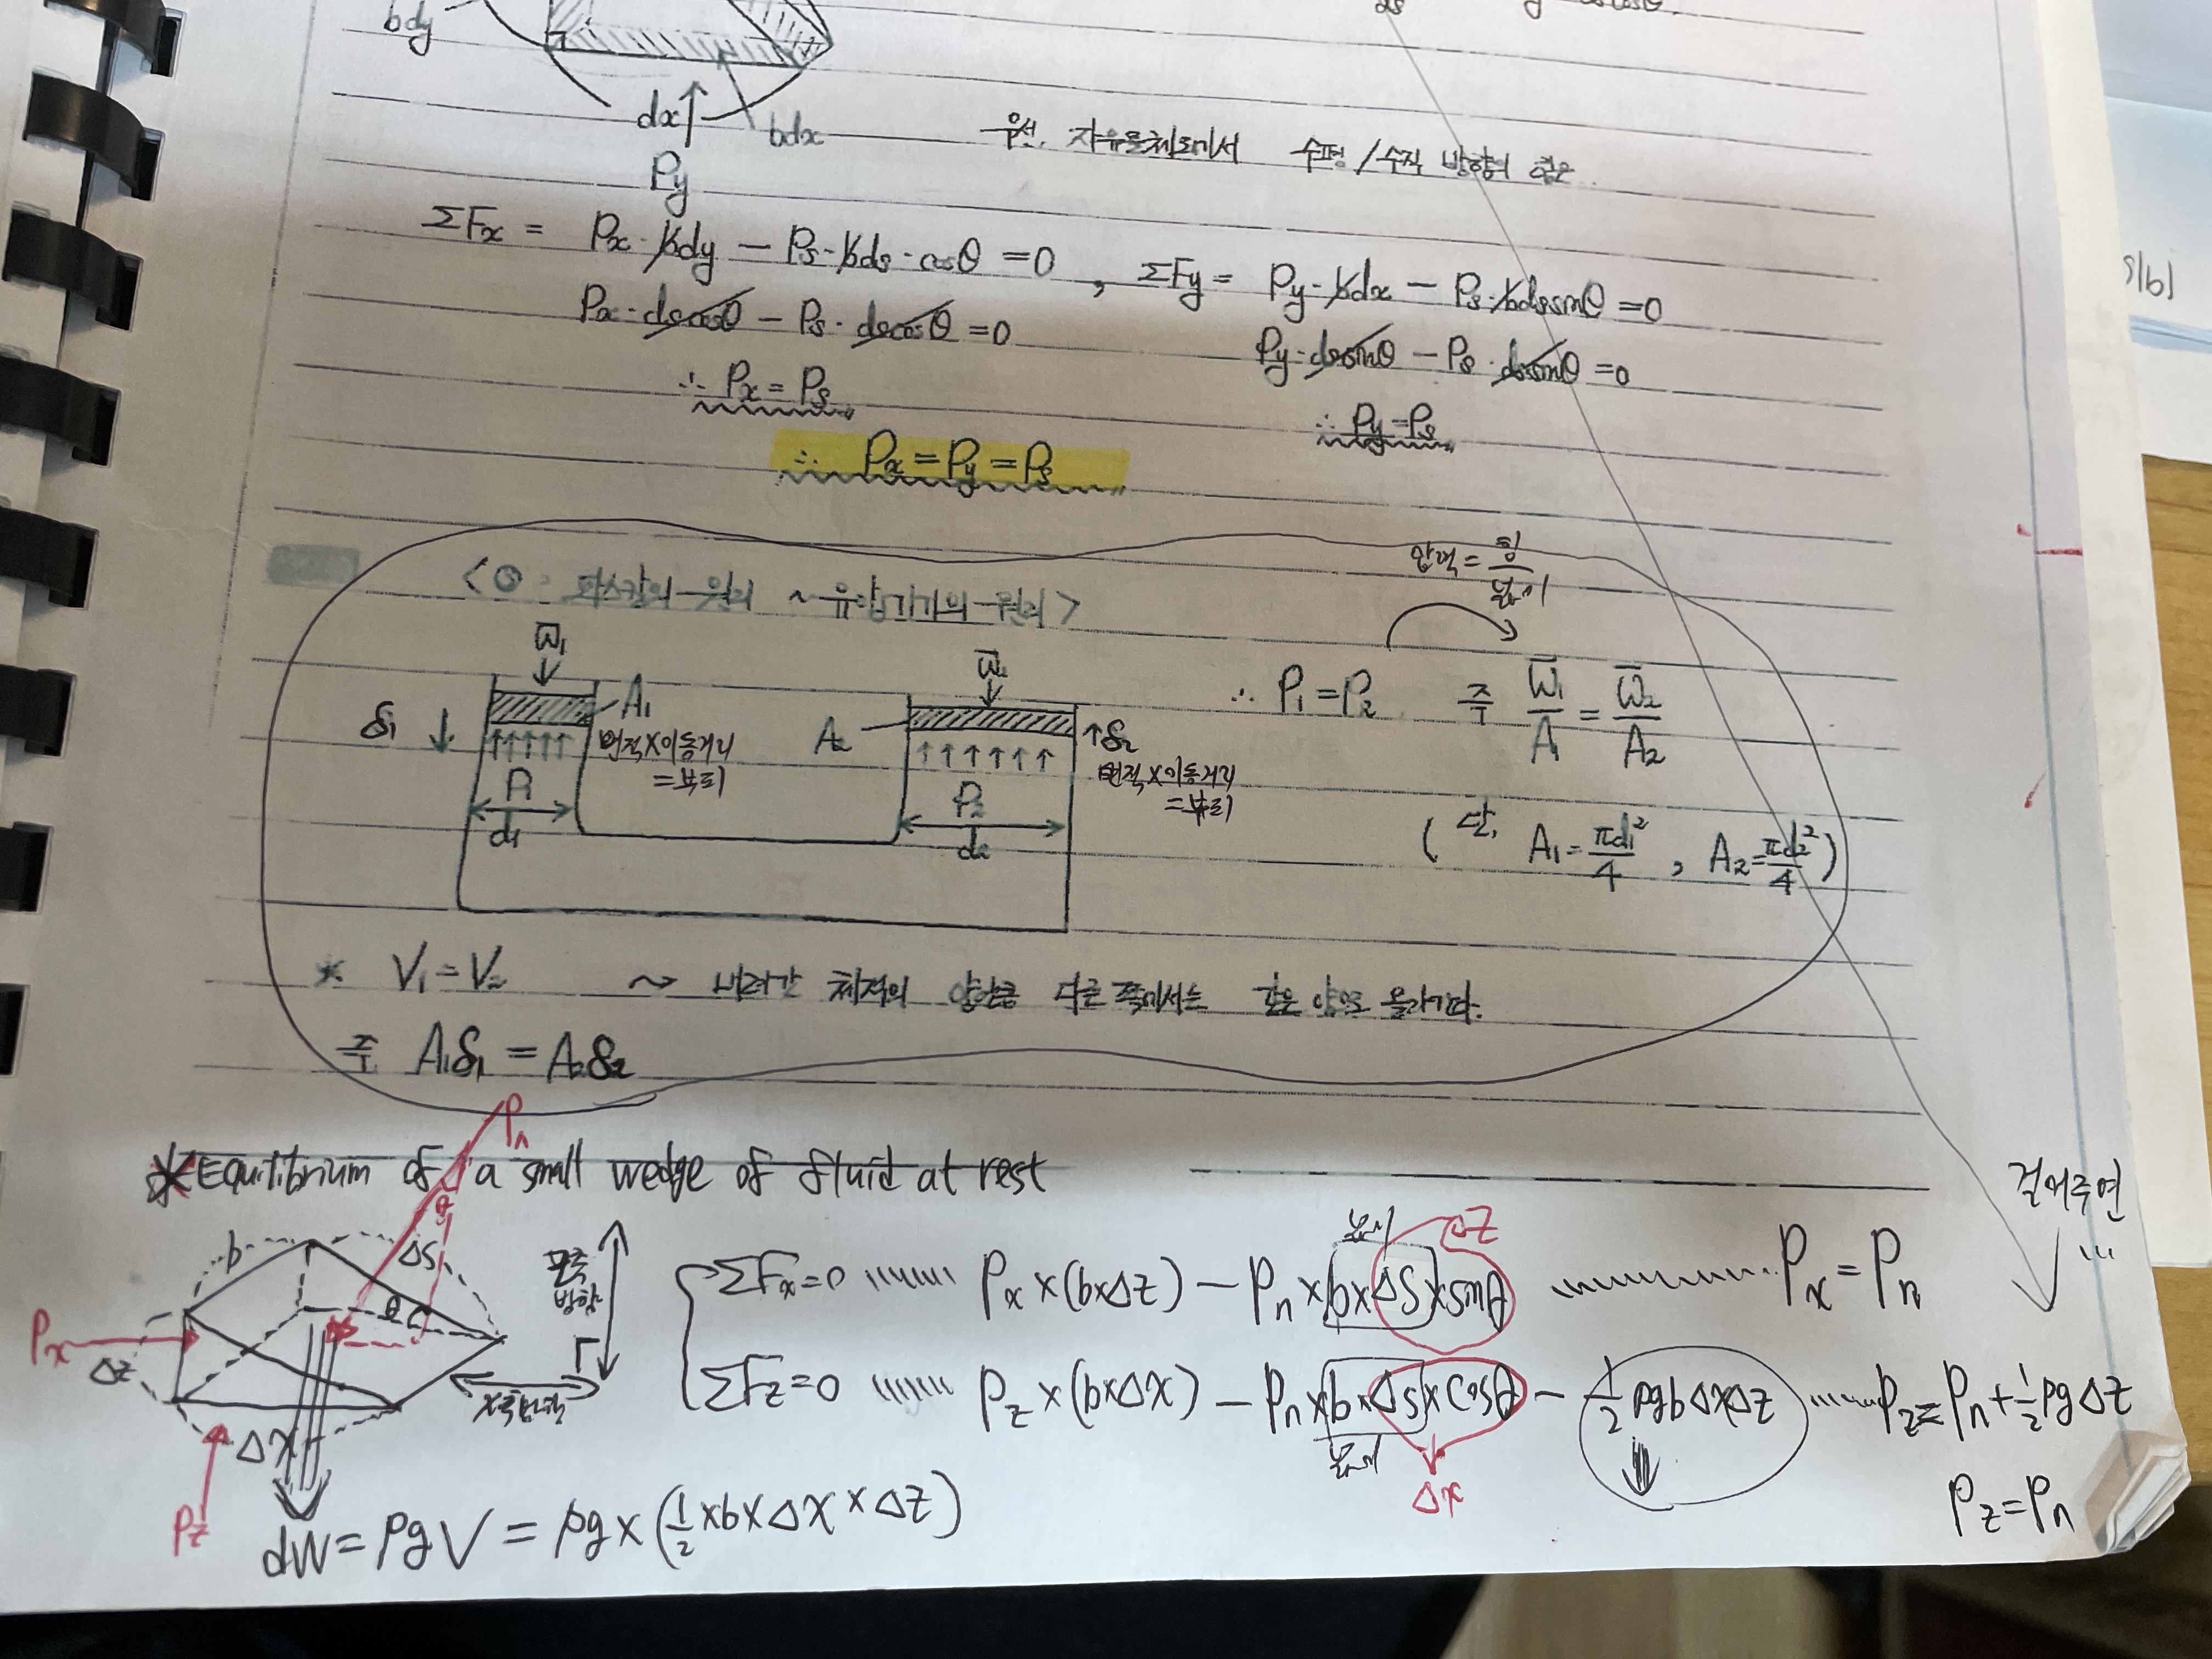 bdy
dx
bdx
Py
우선, 자유물체도에서 수평/수직 방향의 힘은
ΣFx = Px·bdy − Ps·bds·cosθ = 0 , ΣFy = Py·bdx − Ps·bdssinθ = 0
Px·dscosθ − Ps·dscosθ = 0
Py·dssinθ − Ps·dssinθ = 0
∴ Px = Ps
∴ Py = Ps
∴ Px = Py = Ps
압력 = 힘/넓이
< 파스칼의 원리 ~ 유압기기의 원리 >
W₁
W₂
δ₁
A₁
A₂
δ₂
면적×이동거리
=부피
면적×이동거리
=부피
P₁
d₁
P₂
d₂
∴ P₁ = P₂ 즉 W₁/A₁ = W₂/A₂
( 단, A₁ = πd₁²/4 , A₂ = πd₂²/4 )
* V₁ = V₂ ~ 내려간 체적의 양만큼 다른 쪽에서는 같은 양으로 올라간다.
즉 A₁δ₁ = A₂δ₂
Pn
*Equilibrium of a small wedge of fluid at rest
θ
b
ΔS
θ
Px
Δz
Δx
Pz
방향
x축방향
넓이
ΔZ
ΣFx=0 Px×(b×Δz) − Pn×b×ΔS×sinθ Px = Pn
ΣFz=0 Pz×(b×Δx) − Pn×b×Δs×cosθ − ½ρgbΔxΔz Pz = Pn + ½ρgΔz
넓이
Δx
Pz = Pn
dW = ρgV = ρg×(½×b×Δx×Δz)